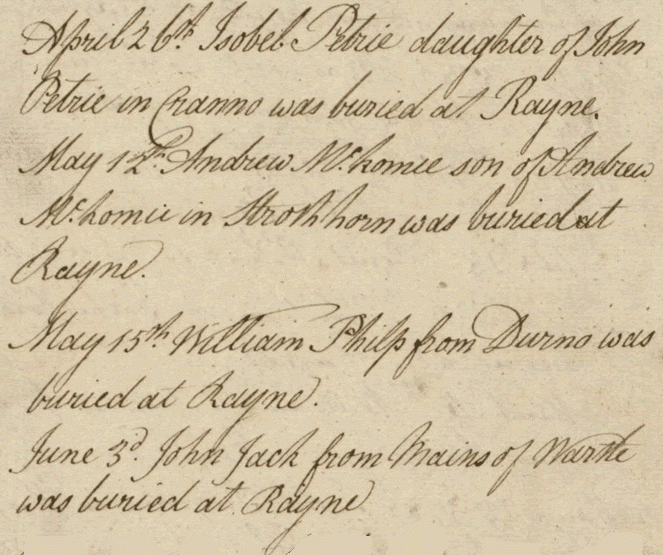 April 26th Isobel Petrie daughter of John
Petrie in Cranno was buried at Rayne.
May 12th Andrew McKomie son of Andrew
McKomie in Strothhorn was buried at
Rayne.
May 15th William Philp from Durno was
buried at Rayne.
June 3d. John Jack from Mains of Warthe
was buried at Rayne